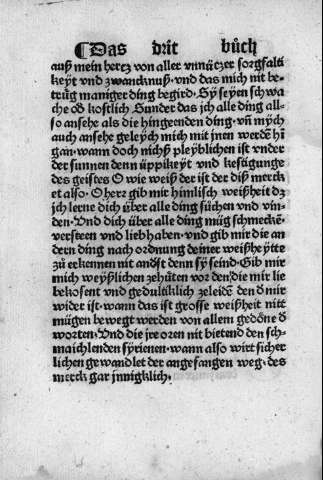 ¶Das drit bůch
auß mein hertz von aller vnnüczer sorgfalti
keyt vnd zwancknuß·vnd das mich nit be-
trüg maniger ding begird·Sy seyen schwa
che oď kostlich·Sunder das jch alle ding all-
so ansehe als die hingeenden ding·vñ mych
auch ansehe geleych mich mit jnen werdẽ hĩ
gan·wann doch nichß pleyblichen ist vnder
der sunnen denn üppikeyt vnd kestigunge
des geistes O wie weiß der ist der diß merck
et also·O herz gib mir himlisch weißheit dz
jch lerne dich über alle ding sůchen vnd vin-
den·Vnd dich über alle ding müg schmeckẽ·
versteen vnd liebhaben·vnd gib mir die an
dern ding nach ordnung deiner weißheytte
zů erkennen nit anďst denn sy seind·Gib mir
mich weyßlichen zehůten vor den die mir lie
bekosent vnd gedultiklich zeleidẽ den ď mir
wider ist·wann das ist grosse weißheit nitt
mügen bewegt werden von allem gedöne ď
worten·Vnd die jre oren nit bietend den sch-
maichlenden syrienen·wann also wirt sicher
lichen gewandlet der angefangen weg·des
merck gar jnnigklich.